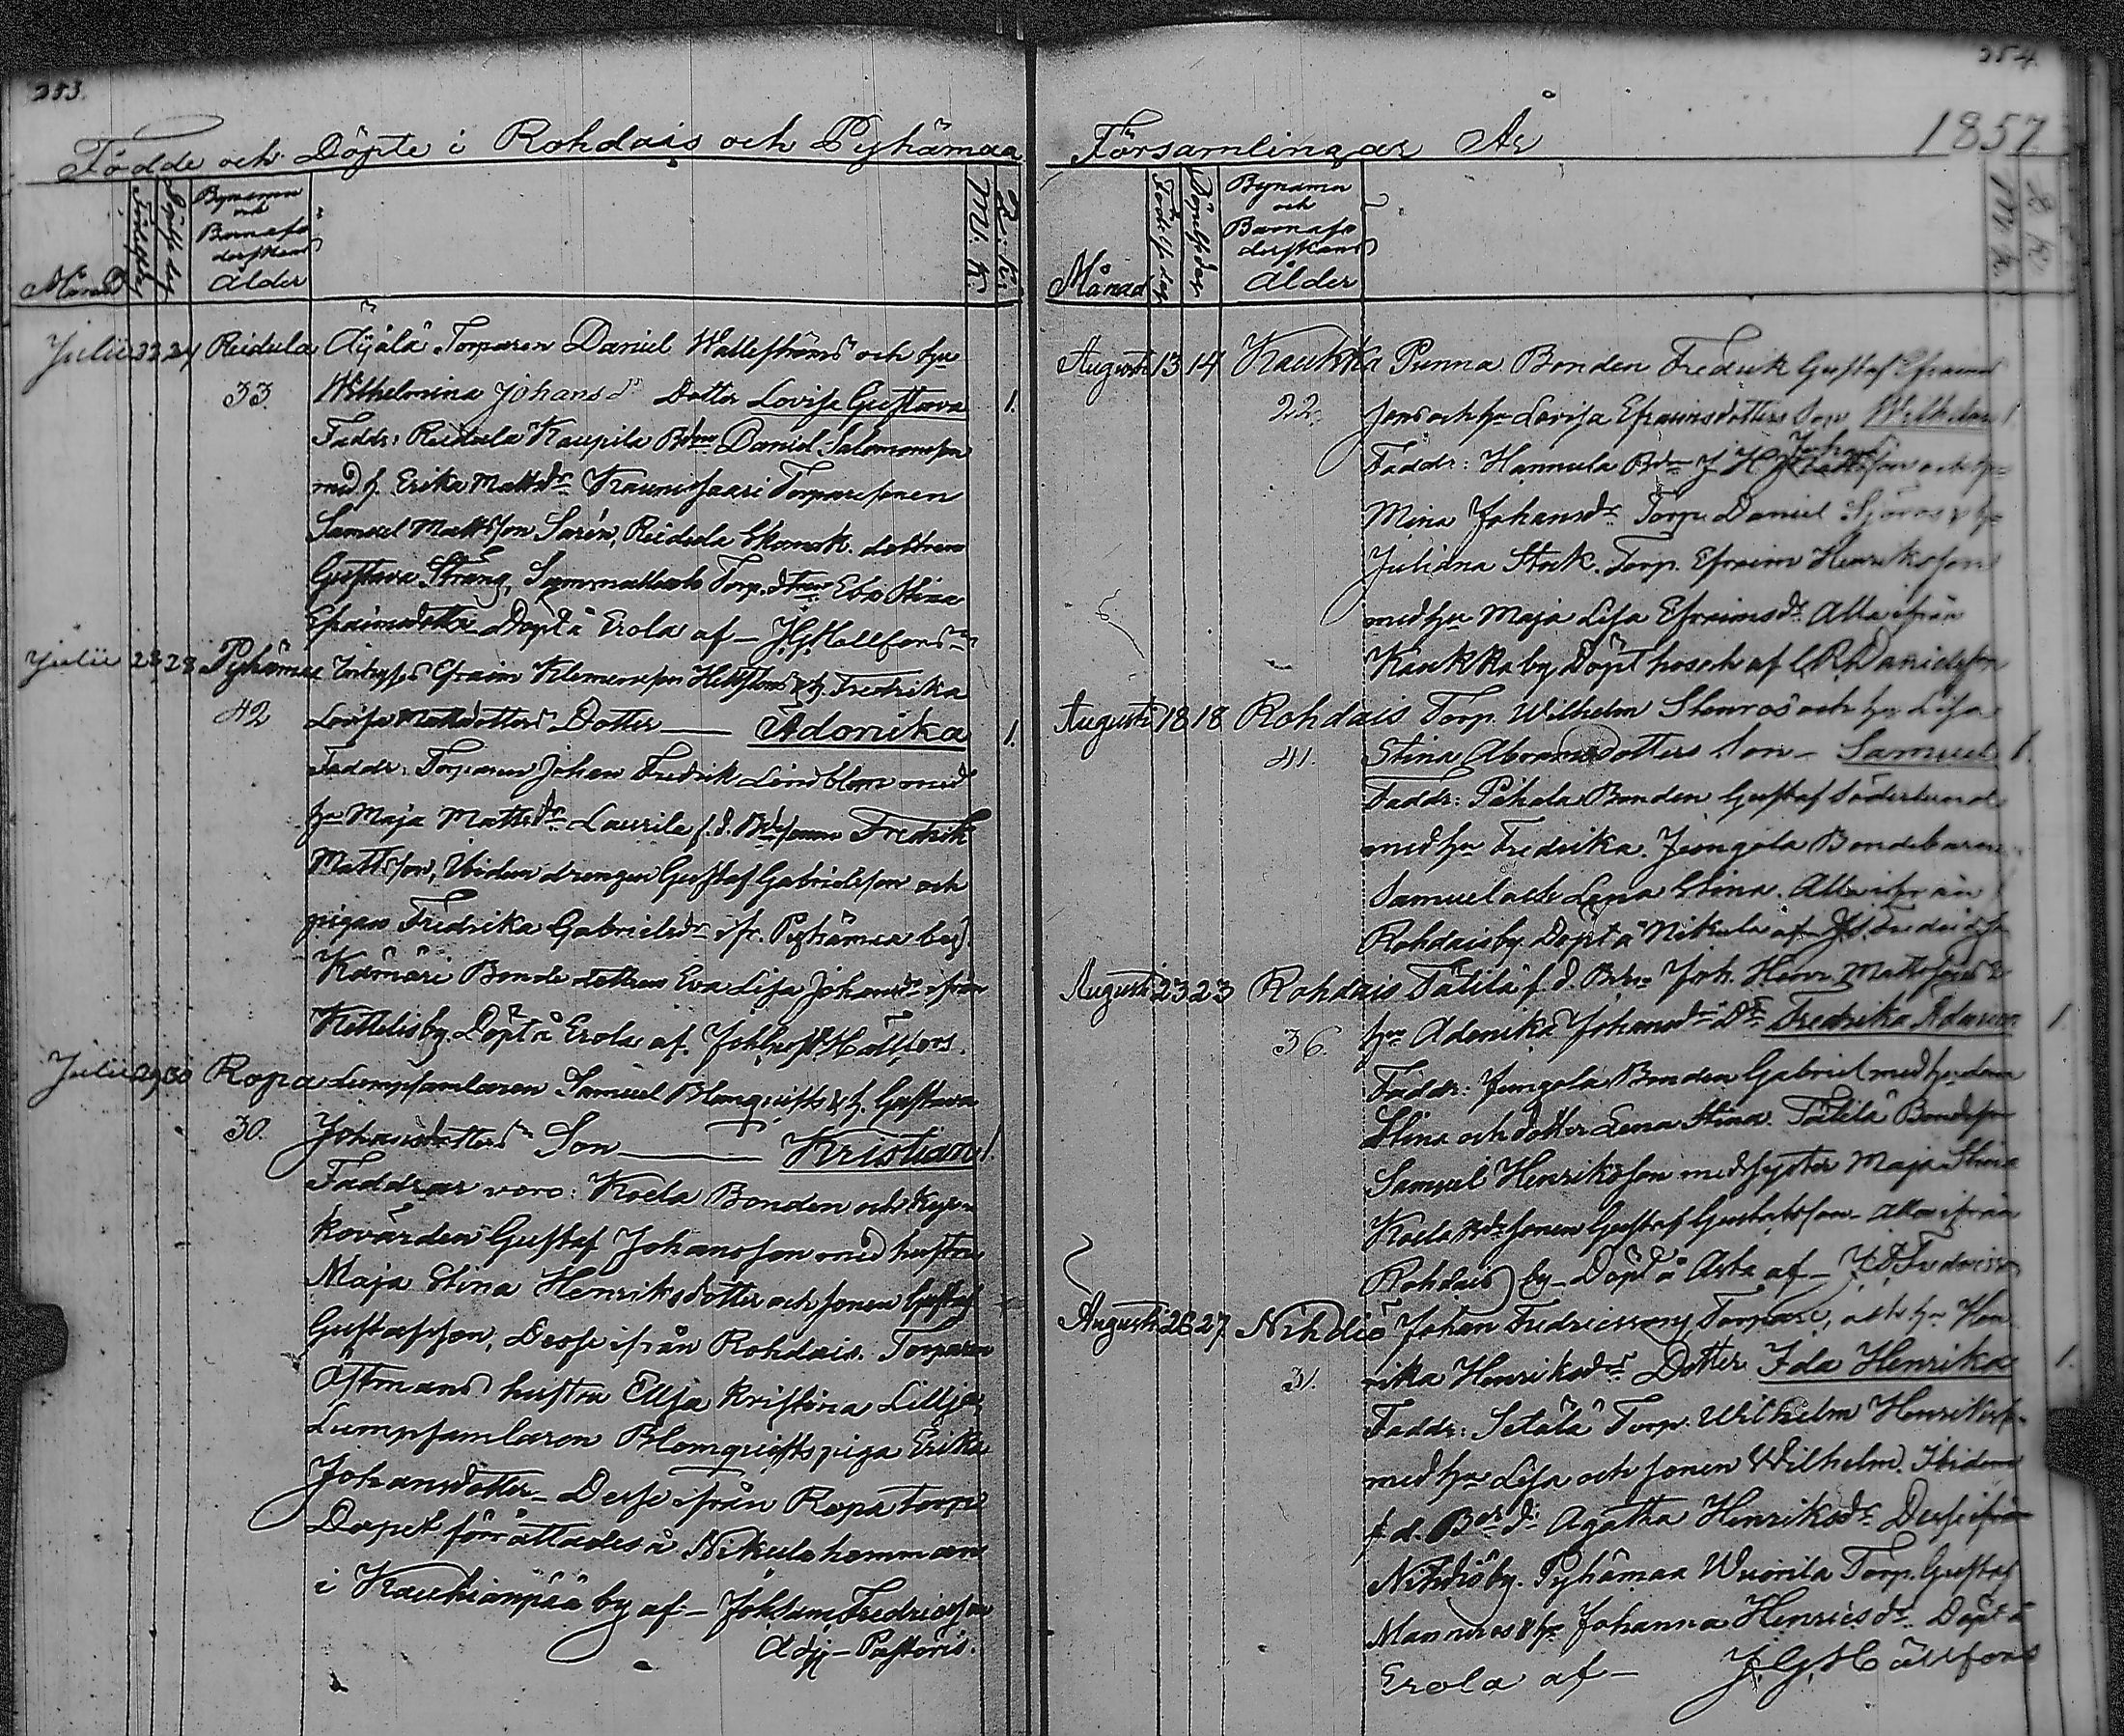 253.
Födde och Döpte i Rohdais och Pyhämaa
Månad
Födelsedag
Döpelsedag
Bynamn
och
Barnafö
derskans
Ålder
M. K.
Q. K.
Julii 23 24 Reidula Äijälä Torparen Daniel Wallströms och hu
33. Wilhelmina Johansdrs Dotter Lovisa Gustava 1.
Faddr: Reidula Kaupila Bdn Daniel Salomonsson
med h. Erika Mattsdr Kaunissaari Torparesonen
Samuel Mattsson Sarén, Reidula dottren
Gustava Sträng, Torp. Eva Stina
Efraimsdotter Döpt å Erola af – J.G. Hallfors
Julii 28 Pyhämaa Efraim Klemensson & h. Fredrika
42 Lovisa Mattsdotters Dotter — Adonika 1.
Faddr: Torparen Johan Fredrik Lindblom med
hu Maja Mattsdr Laurila f.d. Fredrik
Mattsson, Ibidem drengen Gustaf Gabrielsson och
pigan Fredrika Gabrielsdr ifr. Pyhämaa by.
Kämäri Bonde dottren Eva Lisa Johansdr ifrån
Kettelisby. Döpt å Erola af. Hällfors.
Julii 29 30 Ropa Lumpsamlaren Samuel Blomqvists & h. Gustava
30. Johansdotters Son — Kristian 1
Faddrar voro: Koela Bonden och Kyr-
kovärden Gustaf Johansson med hustru
Maja Stina Henriksdotter och sonen Gustaf
Gustafsson, Desse ifrån Rohdais. Torparen
Östmans hustru Ellsa Kristina Lillja,
Lumpsamlaren Blomqvists piga Erika
Johansdotter – Desse ifrån Ropa torp
Dopet förrättades å Nikula hemman
i Kaukiainpää by af – Johan Fredricsson
Adj – Pastoris.
254.
Församlingar År 1857
Månad
Födelsedag
Döpelsedag
Bynamn
och
Barnafö
derskans
Ålder
M. K.
Q. K.
Augusti 13 14 Kaukka Punna Bonden Fredrik Gustaf Efraims
22. sons och hu Lovisa Efraimsdotters Son Wilhelm 1
Johans
Faddr: Hannula Bdn J. H. och hu
Mina Johansdr Torp. Daniel Sjöros & hu
Juliana Stark. Torp. Efraim Henriksson
med hu Maja Lisa Efraimsdr Alla ifrån
Kaukka by, Döpt af Danielsson
Augusti 18 18 Rohdais Torp. Wilhelm Stenros och hu Lisa
41. Stina Abramsdotters Son – Samuel 1.
Faddr: Pihala Bonden Gustaf Söderlund
med hu Fredrika. Jungola Bondebarnen
Samuel och Lena Stina. Alla ifrån
Rohdaisby. Döpt å Nikula af
Augusti 23 23 Rohdais Tätilä f. d. Bdn Joh. Henr. Mattssons &
36. hu Adonika Johansdr Dr Fredrika 1
Faddr: Jungola Bonden Gabriel med hu Lena
Stina och dotter Lena Stina. Tätilä Bondeson
Samuel Henriksson med syster Maja Stina
Koela sonen Gustaf Gustafsson – Alla ifrån
Rohdais by – Döpt å af –
Augusti 26 27 Nihdiö Johan Fredricssons, Torpare, och hu Hen
31. rika Henriksdrs Dotter Ida Henrika 1.
Faddr: Setälä Torp. Wilhelm Henrikss.
med hu Lisa och sonen Wilhelm. Ibidem
f. d. Agatha Henriksdr Desse ifrån
Nihdiöby. Pyhämaa Wuorila Torp. Gustaf
Manneros & hu Johanna Henricsdr Döpt å
Erola af – J. G. Hällfors